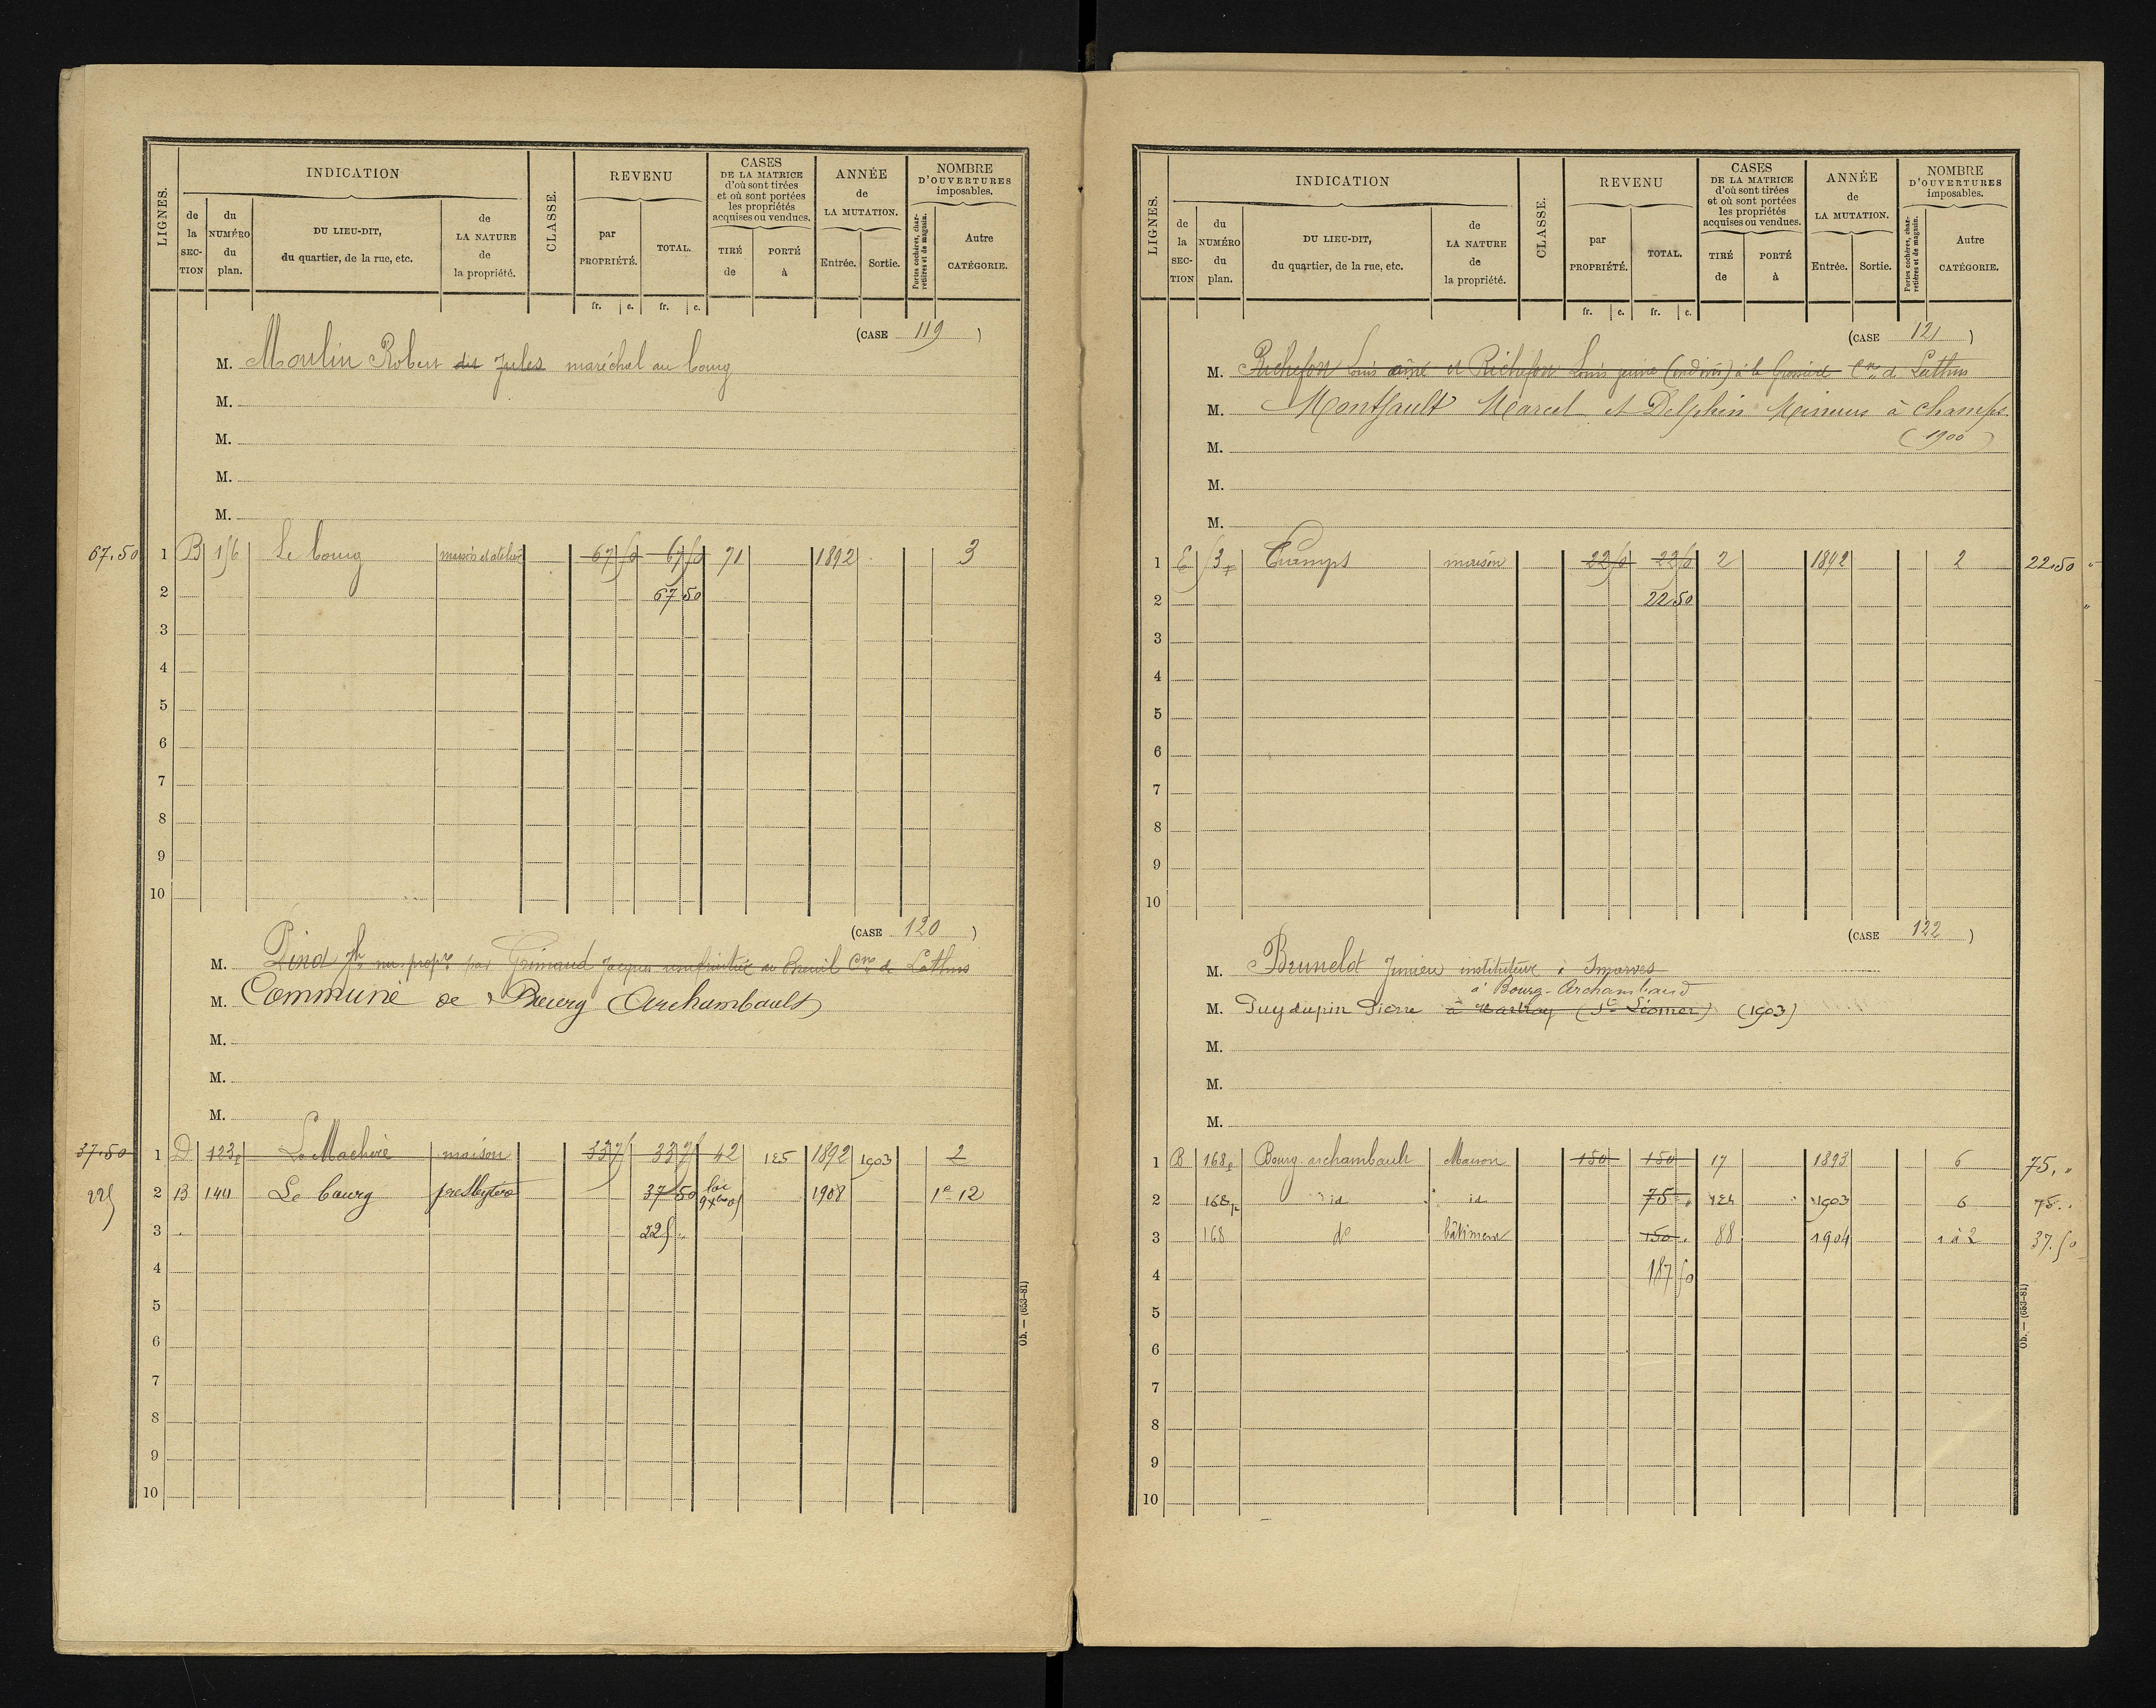 LIGNES. INDICATION CLASSE. REVENU CASES DE LA MATRICE d'où sont tirées et où sont portées les propriétés acquises ou vendues. ANNÉE de LA MUTATION. NOMBRE D'OUVERTURES imposables.
de la SECTION du NUMÉRO du plan. DU LIEU-DIT, du quartier, de la rue, etc. de LA NATURE de la propriété. par PROPRIÉTÉ. TOTAL. TIRÉ de PORTÉ à Entrée. Sortie. Portes cochères, charretières et de magasin. Autre CATÉGORIE.
fr. c. fr. c.
(CASE 119)
M. Moulin Robert dit Jules maréchal au bourg
M.
M.
M.
M.
67.50 1 B 156 Le bourg maison et atelier 67 50 67 50 71 1892 3
2 67 50
3
4
5
6
7
8
9
10
(CASE 120)
M. Pinot Jh nu-propre par Grimaud Jacques usufruitier au Cne de Lathus
M. Commune de Bourg Archambault
M.
M.
M.
37.50 1 D 123p La Machère maison 33 75 33 75 42 125 1892 1903 2
225 2 B 144 Le bourg presbytère 37 50 1908 1e 12
3 225 "
4
5
6
7
8
9
10
Ob. — (653-81)
LIGNES. INDICATION CLASSE. REVENU CASES DE LA MATRICE d'où sont tirées et où sont portées les propriétés acquises ou vendues. ANNÉE de LA MUTATION. NOMBRE D'OUVERTURES imposables.
de la SECTION du NUMÉRO du plan. DU LIEU-DIT, du quartier, de la rue, etc. de LA NATURE de la propriété. par PROPRIÉTÉ. TOTAL. TIRÉ de PORTÉ à Entrée. Sortie. Portes cochères, charretières et de magasin. Autre CATÉGORIE.
fr. c. fr. c.
(CASE 121)
M. Richefort Louis aîné et Richefort Louis jeune (indivis) à la Cne de Lathus
M. Montfault Marcel et Delphin Mineurs à Champs
M. (1900)
M.
M.
1 E 53p Champs maison 22 50 22 50 2 1892 2 22.50
2 22.50
3
4
5
6
7
8
9
10
(CASE 122)
M. Brunelot Junien instituteur à Smarves
à Bourg-Archambaud
M. Puydupin Pierre à Martray (St Léomer) (1903)
M.
M.
M.
1 B 168p Bourg archambault Maison 150 150 17 1893 6 75, "
2 168p id id 75 " 124 1903 6 75. "
3 168 do bâtiment 150 " 88 1904 1 à 2 37.50
4 187 50
5
6
7
8
9
10
Ob. — (653-81)